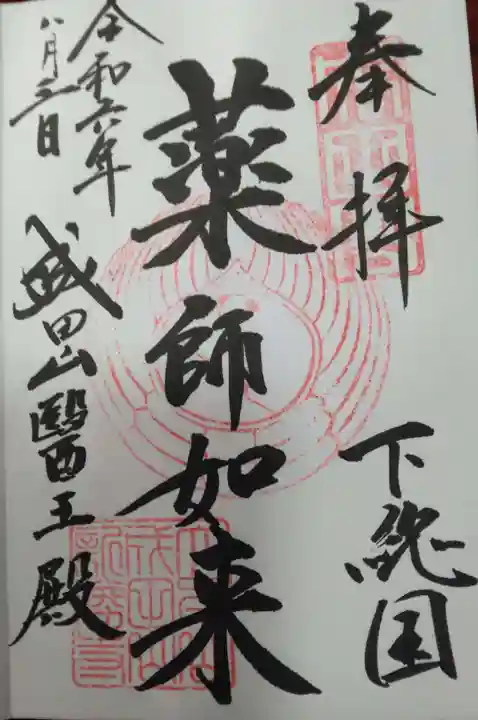 奉拝
下総国
薬師如来
成田山醫王殿
令和六年
八月三日